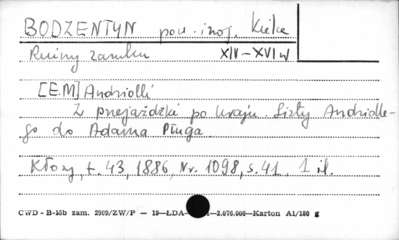 BODZENTYN pow. i woj. Kielce
Ruiny zamku XIV-XVI w
[E.M] Andriolli
Z przejażdżki po kraju. Listy Andriolle-
go do Adama Pługa
Kłosy, t. 43, 1886, Nr. 1098, s. 41. 1 il.
CWD - B-15b zam. 2509/ZW/P — 19—ŁDA- —2.076.000—Karton A1/180 g